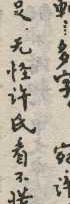 多字
足·无怪许氏看不惯